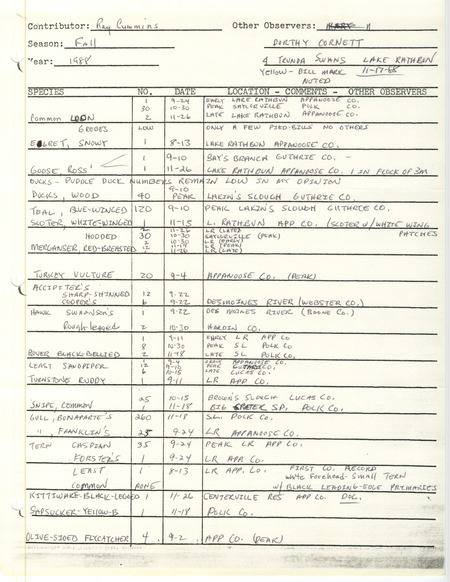 Contributor: Ray Cummins Other Observers:
Season: Fall DORTHY CORNETT
Year: 1988 4 TRUNDA SWANS LAKE RATHBUN
YELLOW-BILL MARK 11-17-88
NOTED
SPECIES NO. DATE LOCATION - COMMENTS - OTHER OBSERVERS
1 9-24 EARLY LAKE RATHBUN APPANOOSE CO.
30 10-30 PEAK SAYLORVILLE POLK CO.
Common LOON 2 11-26 LATE LAKE RATHBUN APPANOOSE CO.
GREBES LOW ONLY A FEW PIED-BILLS NO OTHERS
EGRET, SNOWY 1 8-13 LAKE RATHBUN APPANOOSE CO.
1 9-10 BAY'S BRANCH GUTHRIE CO. -
GOOSE, ROSS' 1 11-26 LAKE RATHBUN APPANOOSE CO. 1 IN FLOCK OF 3M
DUCKS - PUDDLE DUCK NUMBERS REMAIN LOW IN MY OPINION
DUCKS, WOOD 40 9-10 PEAK LAKIN'S SLOUGH GUTHRIE CO.
TEAL, BLUE-WINGED 120 9-10 PEAK LAKIN'S SLOUGH GUTHRIE CO.
SCOTER, WHITE-WINGED 1 11-15 L. RATHBUN APP CO. (SCOTER W/WHITE WING
PATCHES
2 11-26 LR (LATE)
HOODED 30 10-30 SAYLORVILLE (PEAK)
2 10-30 LR (EARLY)
12 11-17 LR (PEAK)
MERGANSER, RED-BREASTED 1 11-26 LR (LATE)
TURKEY VULTURE 20 9-4 APPANOOSE CO. (PEAK)
ACCIPITER'S
SHARP-SHINNED 12 9-22
COOPER'S 6 9-22 DESMOINES RIVER (WEBSTER CO.)
HAWK SWAINSON'S 1 9-22 DES MOINES RIVER (BOONE CO.)
Rough-legged 2 10-30 HARDIN CO.
1 9-11 EARLY LR APP CO
8 10-30 PEAK SL POLK CO
PLOVER BLACK-BELLIED 2 11-18 LATE SL POLK CO.
1 9-4 EARLY APPANOOSE CO.
LEAST SANDPIPER 12 9-10 PEAK GUTHRIE CO.
6 10-15 LATE LUCAS CO.
TURNSTONE RUDDY 1 9-11 LR APP CO.
25 10-15 BROWN'S SLOUGH LUCAS CO.
SNIPE, COMMON 1 11-18 BIG CREEK SP, POLK CO.
GULL, BONAPARTE'S 260 11-18 S.L. POLK CO.
" , FRANKLIN'S 25 9-24 LR APPANOOSE CO.
TERN CASPIAN 35 9-24 PEAK LR APP CO.
FORSTER'S 1 9-24 LR APP CO.
LEAST 1 8-13 LR APP. CO. FIRST CO. RECORD
White Forehead-Small TERN
COMMON NONE W/ BLACK LEADING-EDGE PRIMARIES
KITTIWAKE-BLACK-LEGGED 1 11-26 CENTERVILLE RES APP CO. DOC.
SAPSUCKER-YELLOW-B 1 11-18 POLK CO.
OLIVE-SIDED FLYCATCHER 4 9-2 APP CO. (PEAK)